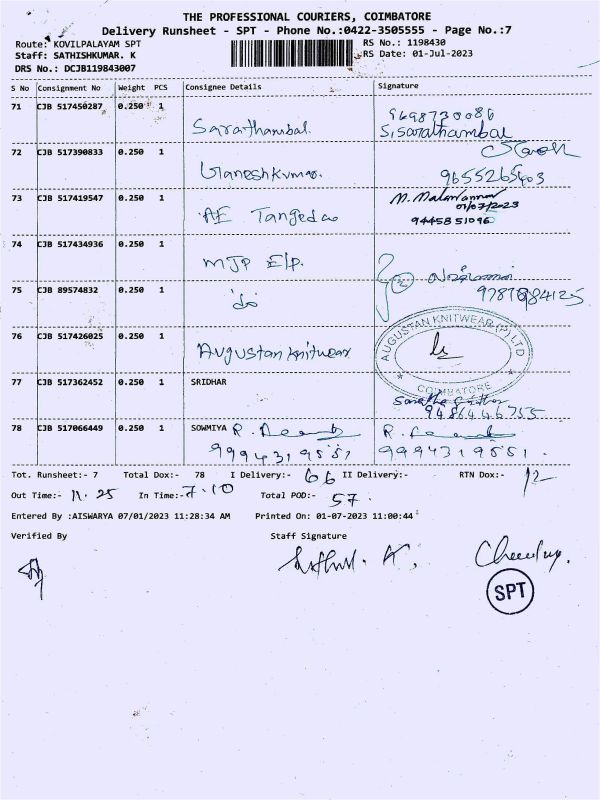 THE PROFESSIONAL COURIERS, COIMBATORE
Delivery Runsheet - SPT - Phone No.:0422-3505555 - Page No.:7
Route: KOVILPALAYAM SPT
RS No.: 1198430
Staff: SATHISHKUMAR. K
RS Date: 01-Jul-2023
DRS No.: DCJB119843007
S No Consignment No Weight PCS Consignee Details Signature
71 CJB 517450287 0.250 1 Sarathambal. 9698730086
S, Sarathambal
72 CJB 517390833 0.250 1 Ganeshkumar. 9655265403
73 CJB 517419547 0.250 1 AE Tangedco
01/07/2023
9445851096
74 CJB 517434936 0.250 1 MJP E/p.
75 CJB 89574832 0.250 1
76 CJB 517426025 0.250 1 Augustan Knitwear
AUGUSTAN KNITWEAR (P) LTD
COIMBATORE
77 CJB 517362452 0.250 1 SRIDHAR
9486446755
78 CJB 517066449 0.250 1 SOWMIYA R. R.
9994319551 9994319551.
Tot. Runsheet:- 7 Total Dox:- 78 I Delivery:- 66 II Delivery:- RTN Dox:- 12
Out Time:- 11.25 In Time:- 7.10 Total POD:- 57.
Entered By :AISWARYA 07/01/2023 11:28:34 AM Printed On: 01-07-2023 11:00:44
Verified By Staff Signature
SPT